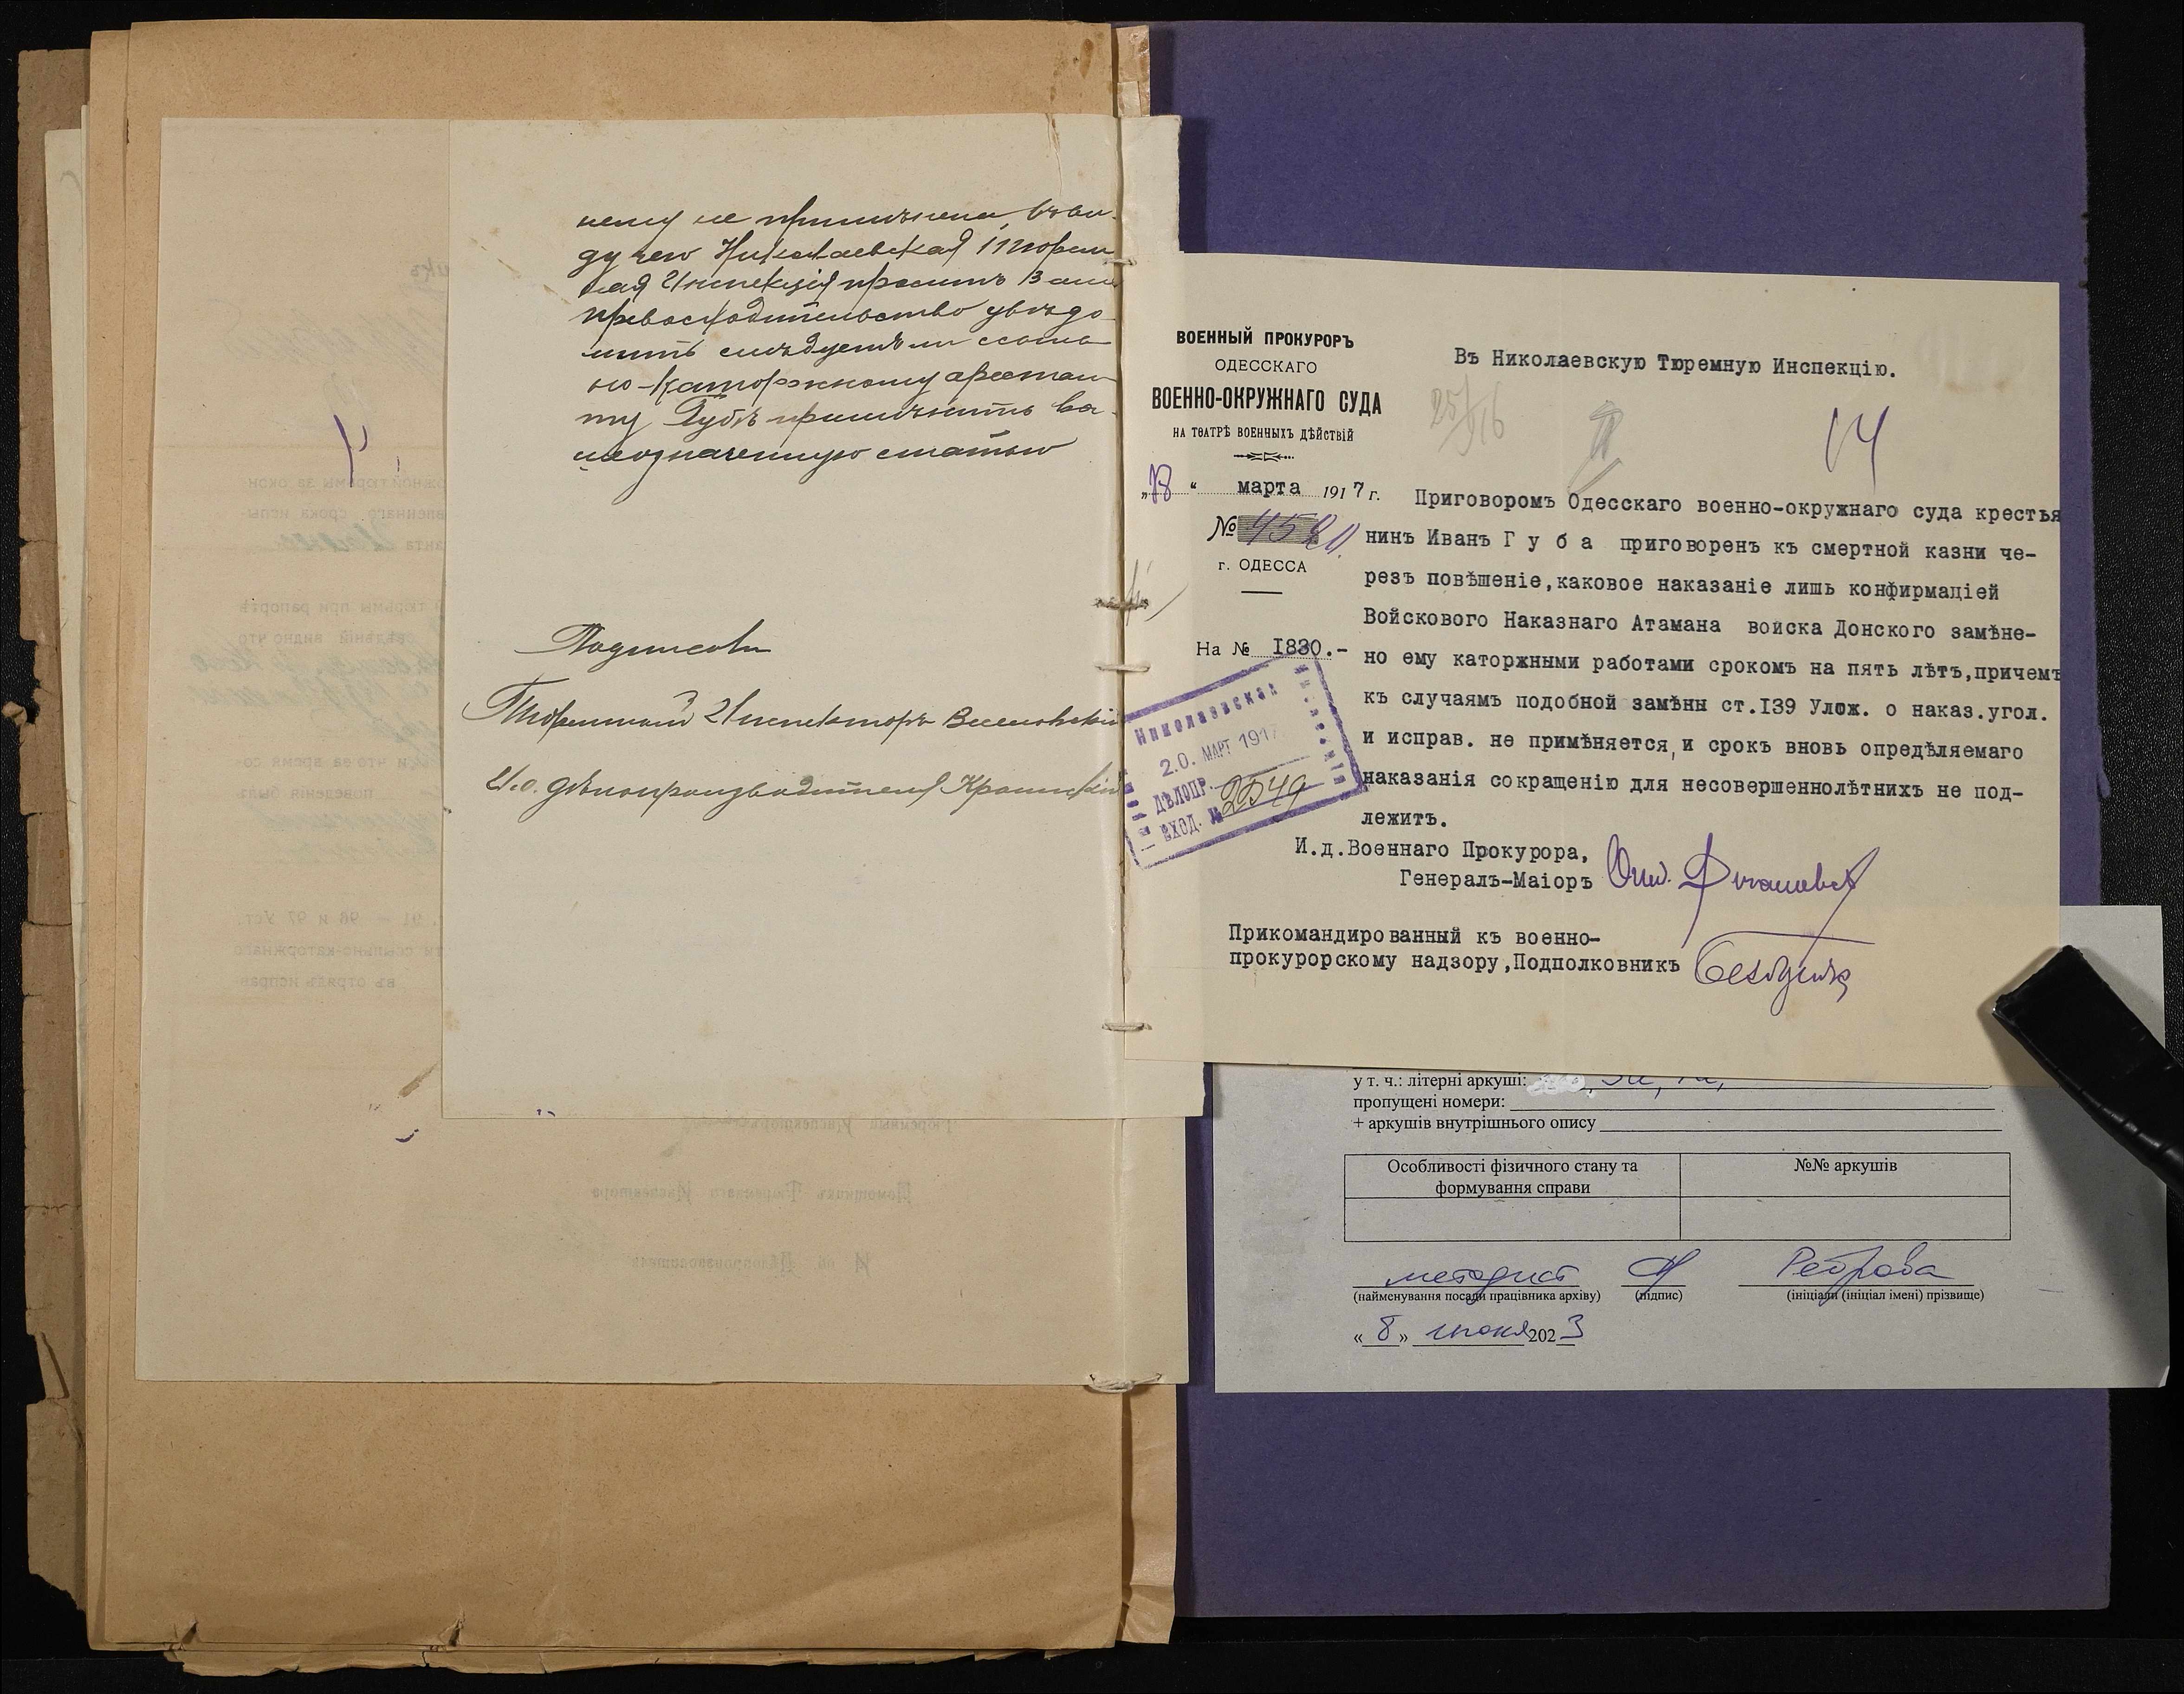 нему не примѣнена, въ ви-
ду чего Николаевская Тюрем
ная Инспекція проситъ Ваше
превосходительство увѣдо-
мить слѣдуетъ ли ссыль-
но-каторжному арестан-
ту Губѣ примѣнить вы-
шеозначенную статью
Подписали
Тюремный Инспекторъ
И.о. дѣлопроизводителя
ВОЕННЫЙ ПРОКУРОРЪ
ОДЕССКАГО
ВОЕННО-ОКРУЖНАГО СУДА
НА ТЕАТРѢ ВОЕННЫХЪ ДѢЙСТВІЙ
„18“ марта 1917 г.
№ 4520
г. ОДЕССА
На № 1830.-
Николаевская
20. МАРТ 1917
ДѢЛОПР.
ВХОД. № 2549
Въ Николаевскую Тюремную Инспекцію.
25/16
14
Приговоромъ Одесскаго военно-окружнаго суда крестья
нинъ Иванъ Г у б а приговоренъ къ смертной казни че-
резъ повѣшеніе, каковое наказаніе лишь конфирмаціей
Войскового Наказнаго Атамана войска Донского замѣне-
но ему каторжными работами срокомъ на пять лѣтъ, причемъ
къ случаямъ подобной замѣны ст.139 Улож. о наказ.угол.
и исправ. не примѣняется, и срокъ вновь опредѣляемаго
наказанія сокращенію для несовершеннолѣтнихъ не под-
лежитъ.
И.д.Военнаго Прокурора,
Генералъ-Маіоръ
Прикомандированный къ военно-
прокурорскому надзору, Подполковникъ
у т. ч.: літерні аркуші:
пропущені номери:
+ аркушів внутрішнього опису
Особливості фізичного стану та
формування справи
№№ аркушів
методист Реброва
(найменування посади працівника архіву) (підпис) (ініціали (ініціал імені) прізвище)
« 8 » июня 2023